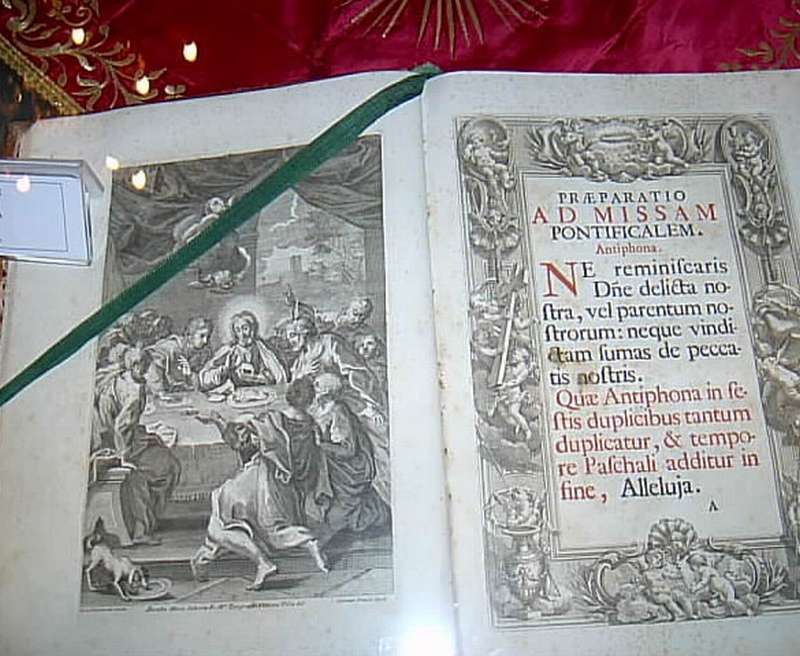 PRÆPARATIO
AD MISSAM
PONTIFICALEM.
Antiphona.
NE reminiſcaris
Dñe delicta no-
ſtra, vel parentum no-
ſtrorum: neque vindi-
ctam ſumas de pecca-
tis noſtris.
Quæ Antiphona in fe-
ſtis duplicibus tantum
duplicatur, & tempo-
re Paſchali additur in
fine, Alleluja.
A